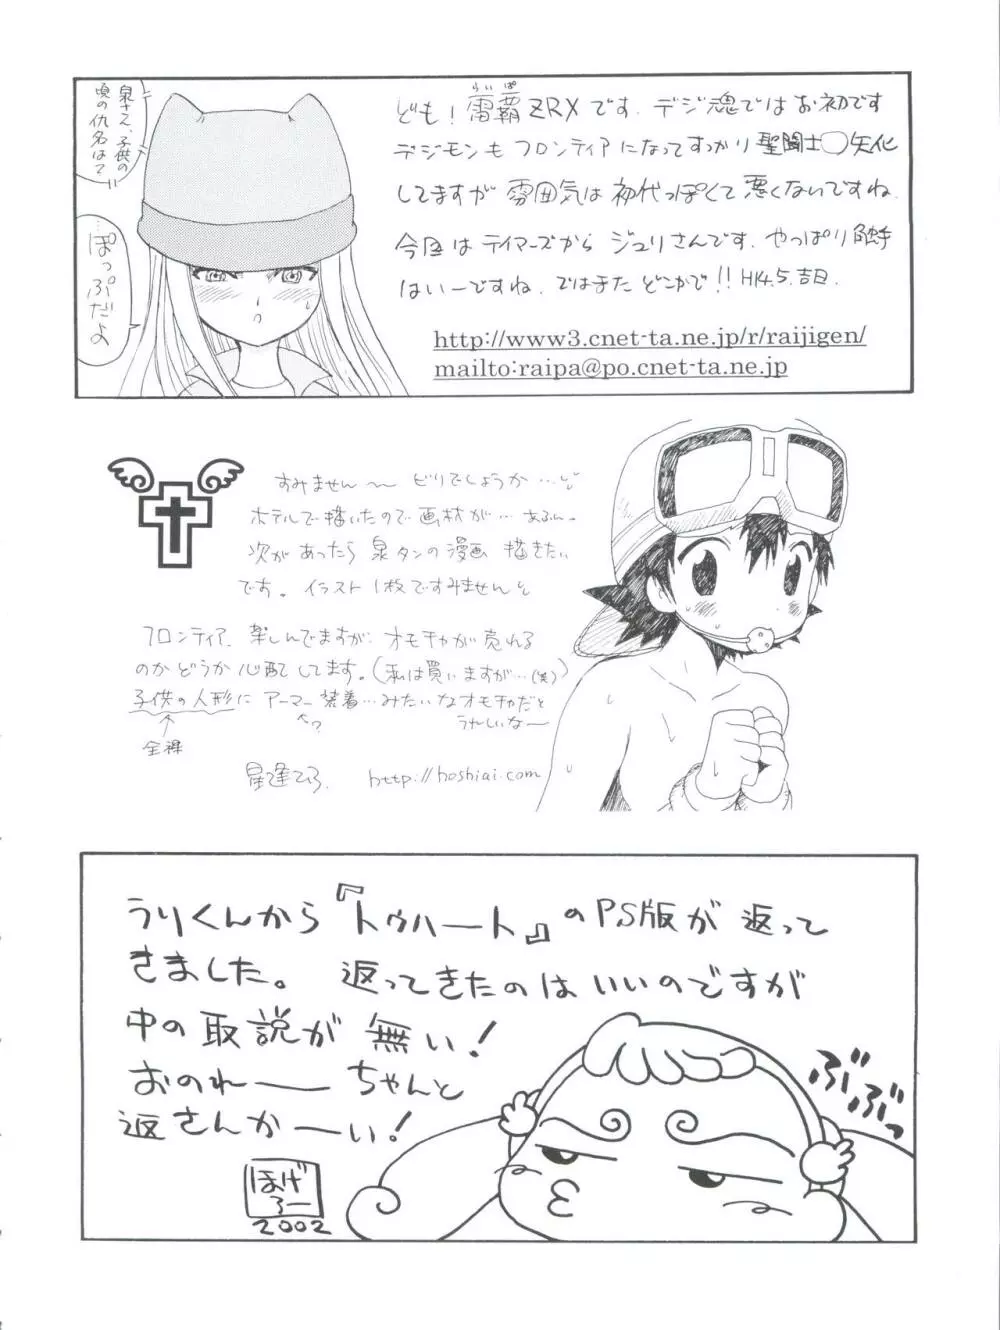 ども！雷覇ZRXです。デジ魂ではお初です
らいぱ
デジモンもフロンティアになってすっかり聖闘士◯矢化
してますが雰囲気は初代っぽくて悪くないですね。
今回はテイマーズからジュリさんです。やっぱり触手
はいーですね。ではまたどこかで!! H14.5.吉日.
http://www3.cnet-ta.ne.jp/r/raijigen/
mailto:raipa@po.cnet-ta.ne.jp
泉さん、子供の
頃の仇名はて
ぽっぷだよ
すみません〜 ビリでしょうか…
ホテルで描いたので画材が…
次があったら泉タンの漫画描きたい
です。イラスト1枚ですみません
フロンティア、楽しんでますが、オモチャが売れる
のかどうか心配してます。(私は買いますが…(笑)
子供の人形にアーマー装着…みたいなオモチャだと
↑ ↑? うれしいなー
全裸
星逢ひろ. http://hoshiai.com
うりくんから『トゥハート』のPS版が返って
きました。返ってきたのはいいのですが
中の取説が無い！
おのれーーちゃんと
返さんかーい！
ぶぶっ
ほげ
ろー
2002